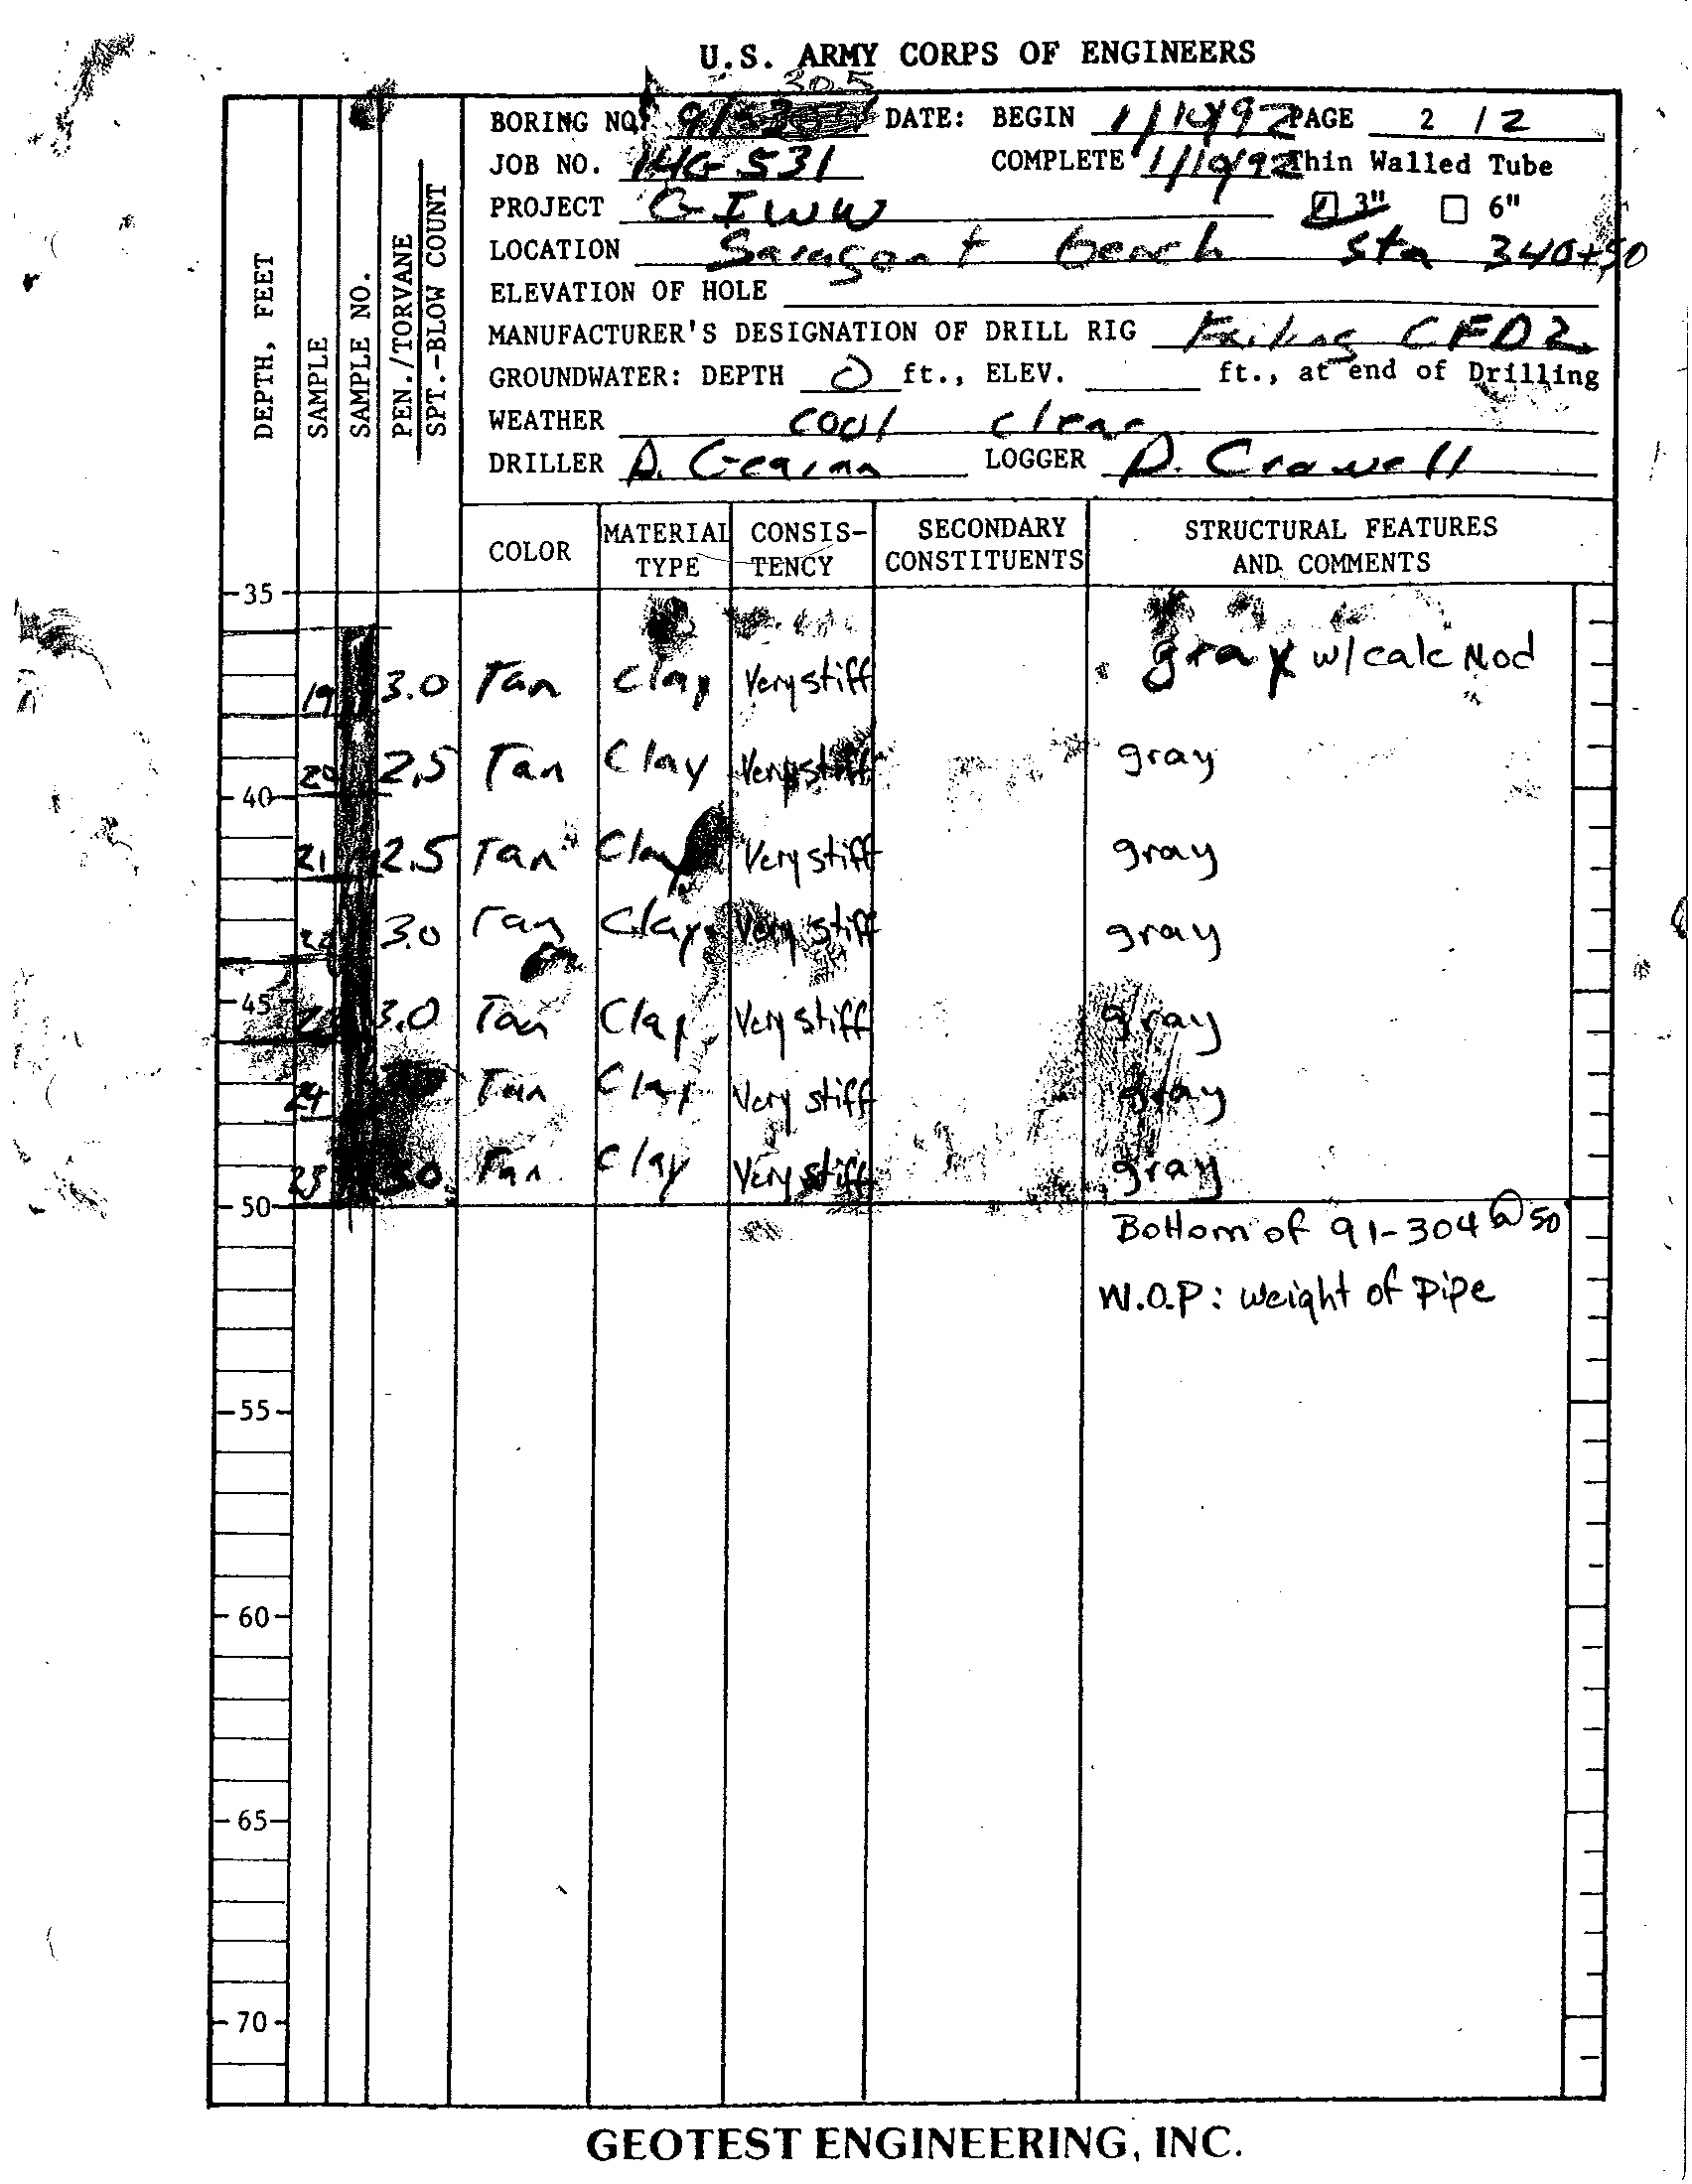 U.S. ARMY CORPS OF ENGINEERS
305
BORING NO. DATE: BEGIN 1/10/92 PAGE 2 / 2
JOB NO. 14G-531 COMPLETE 1/10/92 Thin Walled Tube
PROJECT GIWW 3" 6"
LOCATION Sta 340+50
ELEVATION OF HOLE
MANUFACTURER'S DESIGNATION OF DRILL RIG Failing CFD2
GROUNDWATER: DEPTH 0 ft., ELEV. ft., at end of Drilling
WEATHER cool clear
DRILLER LOGGER D. Crowell
DEPTH, FEET
SAMPLE
SAMPLE NO.
PEN./TORVANE
SPT.-BLOW COUNT
COLOR MATERIAL TYPE CONSIS-TENCY SECONDARY CONSTITUENTS STRUCTURAL FEATURES AND COMMENTS
35
19 3.0 Tan Clay Very stiff gray w/calc Nod
20 2.5 Tan Clay Very stiff gray
40
21 2.5 Tan Clay Very stiff gray
22 3.0 Tan Clay Very stiff gray
45
3.0 Tan Clay Very stiff gray
24 Tan Clay Very stiff gray
25 3.0 Tan Clay Very stiff gray
50
Bottom of 91-304 @ 50'
W.O.P: weight of Pipe
55
60
65
70
GEOTEST ENGINEERING, INC.